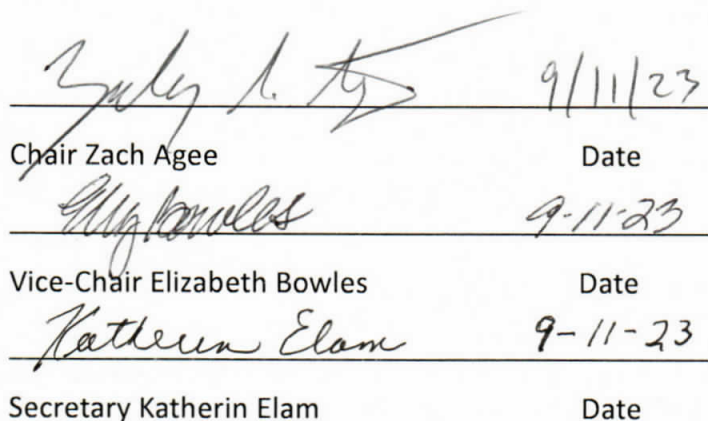 9/11/23
Chair Zach Agee Date
Bowles 9-11-23
Vice-Chair Elizabeth Bowles Date
Katherin Elam 9-11-23
Secretary Katherin Elam Date